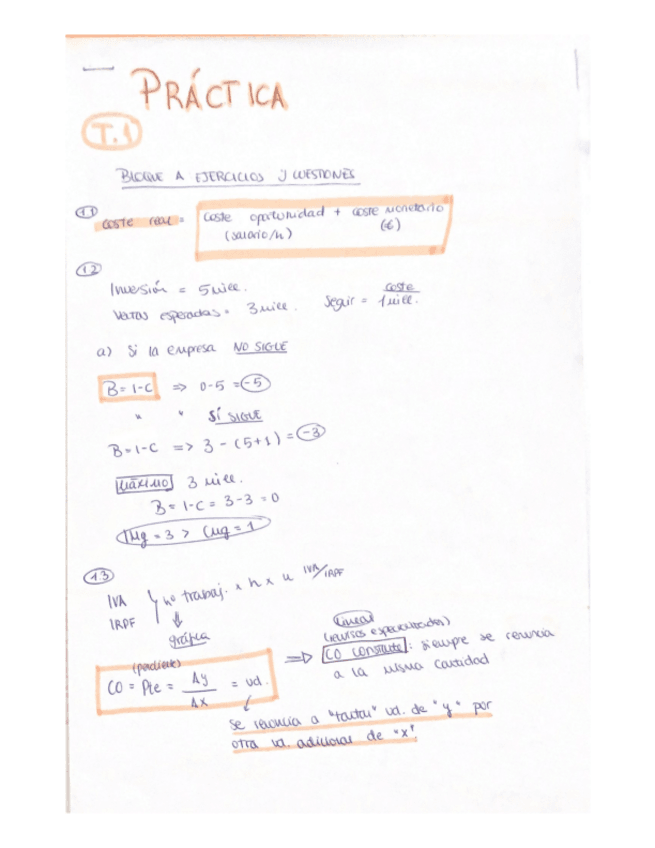 PRÁCTICA
T.1
BLOQUE A EJERCICIOS Y CUESTIONES
1.1 COSTE real = coste oportunidad + coste monetario
(salario/h) (€)
1.2
Inversión = 5 mill.
Ventas esperadas = 3 mill. Seguir = coste 1 mill.
a) Si la empresa NO SIGUE
B = I-C => 0-5 = -5
" " SÍ SIGUE
B = I-C => 3 - (5+1) = -3
MÁXIMO 3 mill.
B = I-C = 3-3 = 0
IMg = 3 > CMg = 1
1.3
IVA
IRPF
nº trabaj. x h x u IVA/IRPF
gráfica
(pendiente)
CO = Pte = Δy/Δx = ud.
Lineal
(recursos especializados)
=> CO constante: siempre se renuncia
a la misma cantidad
Se renuncia a "tantas" ud. de "y" por
otra ud. adicional de "x".